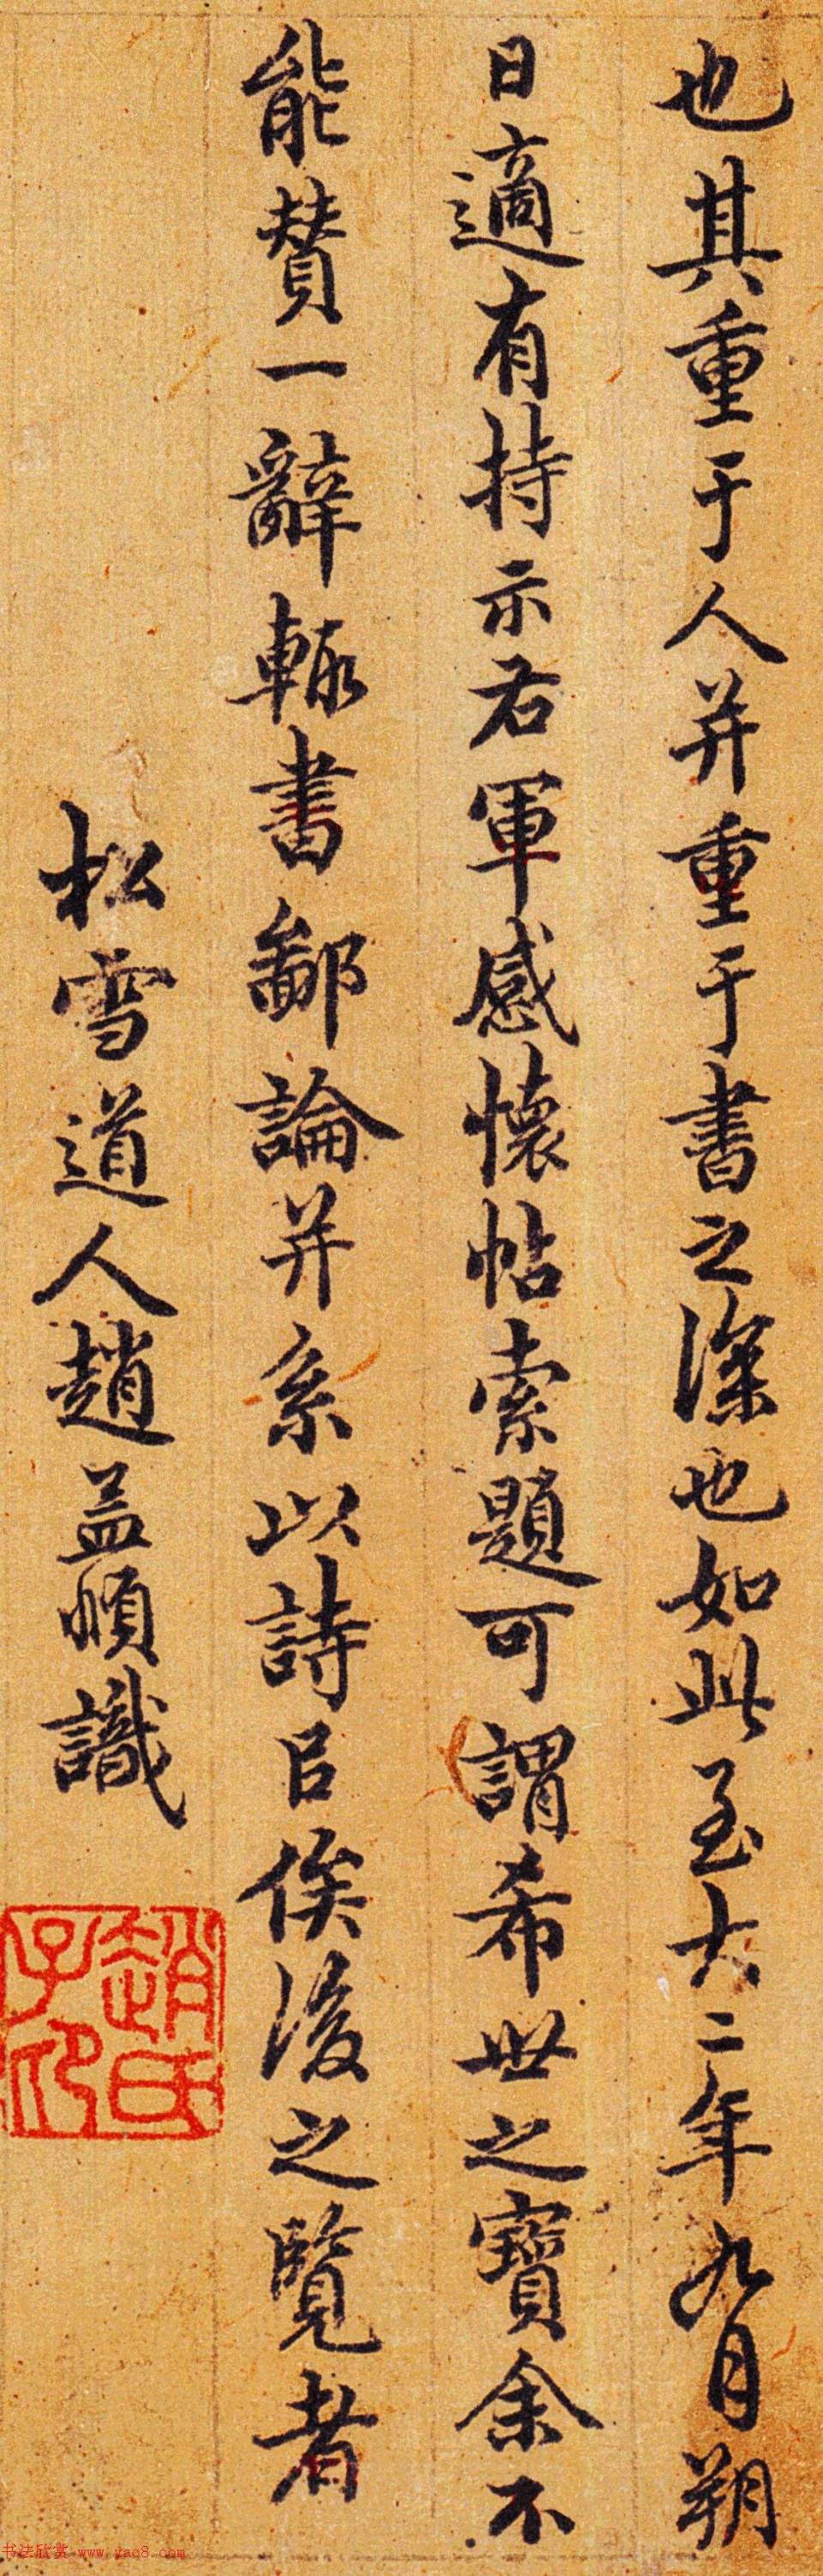 也其重于人并重于書之深也如此至大二年九月朔
日適有持示右軍感懷帖索題可謂希世之寶余不
能賛一辭輙書鄙論并系以詩㠯俟後之覽者
松雪道人趙孟頫識
趙氏子印
书法欣赏 www.yac8.com